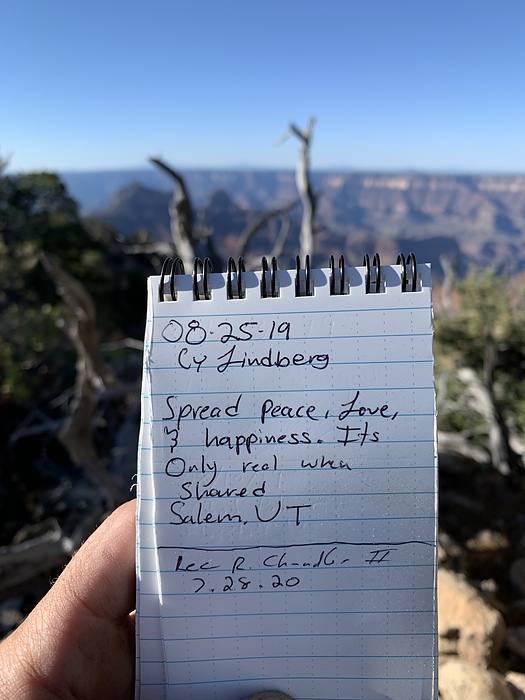 08·25·19
Cy Lindberg
Spread peace, Love,
& happiness. Its
Only real when
Shared
Salem, UT
R. II
7.28.20